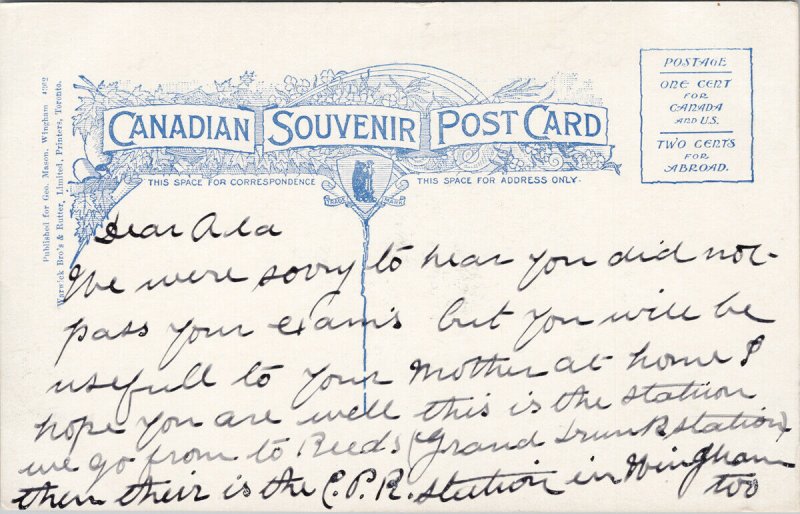 Published for Geo. Mason, Wingham 4362
Warwick Bro's & Rutter, Limited, Printers, Toronto.
CANADIAN SOUVENIR POST CARD
THIS SPACE FOR CORRESPONDENCE
THIS SPACE FOR ADDRESS ONLY.
POSTAGE
ONE CENT
FOR
CANADA
AND U.S.
TWO CENTS
FOR
ABROAD.
TRADE MARK
Dear Ala
We were sorry to hear you did not
pass your exams but you will be
usefull to your Mother at home I
hope you are well this is the statiun
we go from to Reeds (Grand Trunk station)
then their is the C.P.R. station in Wingham
too